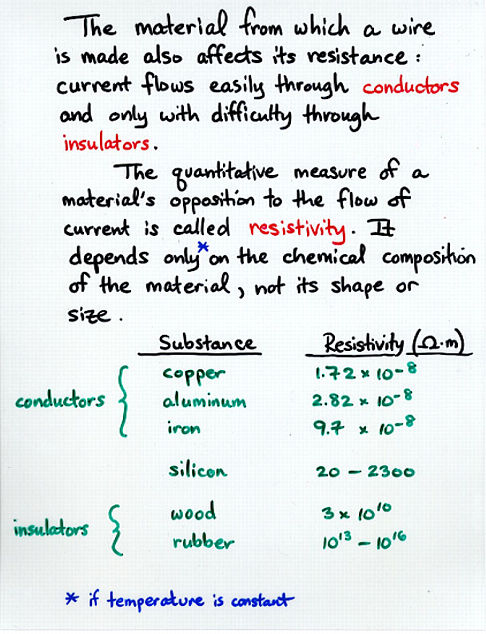 The material from which a wire
is made also affects its resistance:
current flows easily through conductors
and only with difficulty through
insulators.
The quantitative measure of a
material's opposition to the flow of
current is called resistivity. It
depends only* on the chemical composition
of the material, not its shape or
size.
Substance Resistivity (Ω·m)
copper 1.72 × 10⁻⁸
conductors { aluminum 2.82 × 10⁻⁸
iron 9.7 × 10⁻⁸
silicon 20 – 2300
wood 3 × 10¹⁰
insulators { rubber 10¹³ – 10¹⁶
* if temperature is constant